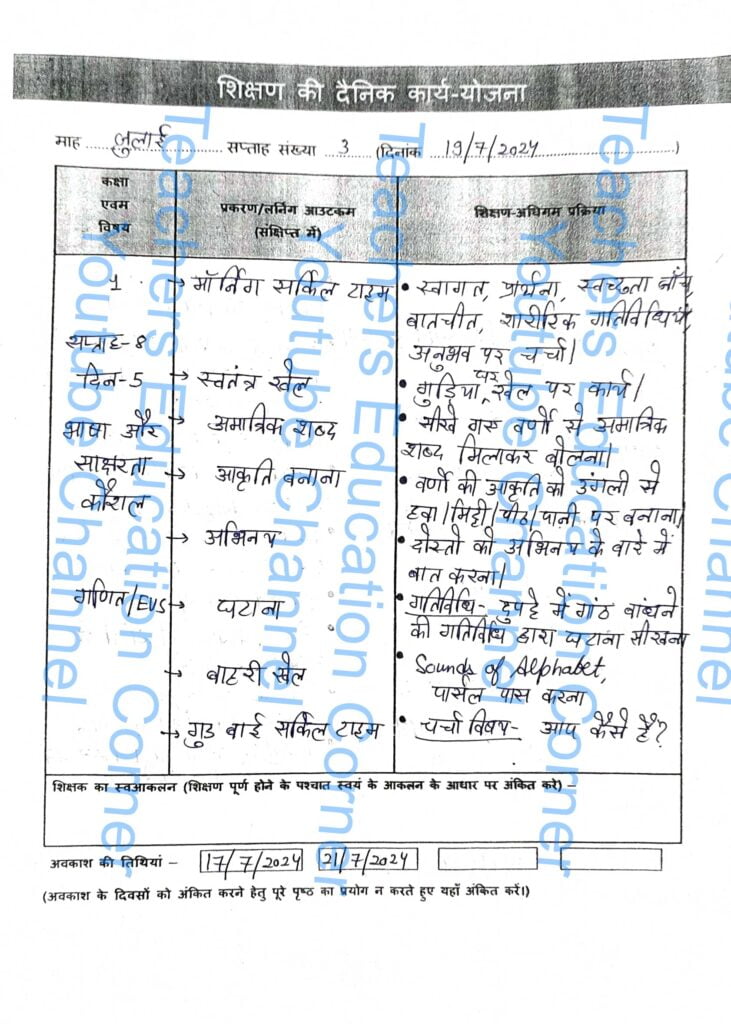 शिक्षण की दैनिक कार्य-योजना
माह जुलाई सप्ताह संख्या 3 (दिनांक 19/7/2024)
कक्षा एवम विषय
प्रकरण/लर्निग आउटकम (संक्षिप्त में)
शिक्षण-अधिगम प्रक्रिया
1 → मॉर्निग सर्किल टाइम • स्वागत, प्रार्थना, स्वच्छता जाँच,
बातचीत, शारीरिक गतिविधियाँ,
सप्ताह-8 अनुभव पर चर्चा।
दिन-5 → स्वतंत्र खेल • गुड़िया घर, खेल पर कार्य।
भाषा और → अमात्रिक शब्द • सीखे गए वर्णो से अमात्रिक
साक्षरता शब्द मिलाकर बोलना।
कौशल → आकृति बनाना • वर्णो की आकृति को उंगली से
हवा/मिट्टी/पीठ/पानी पर बनाना।
→ अभिनय • दोस्तो की अभिनय के बारे में
बात करना।
गणित/EVS → घटाना • गतिविधि- दुपट्टे में गांठ बांधने
की गतिविधि द्वारा घटाना सीखना
→ बाहरी खेल • Sounds of Alphabet,
पार्सल पास करना
→ गुड बाई सर्किल टाइम • चर्चा विषय- आप कैसे है?
शिक्षक का स्वआकलन (शिक्षण पूर्ण होने के पश्चात स्वयं के आकलन के आधार पर अंकित करे) –
अवकाश की तिथियां – 17/7/2024 21/7/2024
(अवकाश के दिवसों को अंकित करने हेतु पूरे पृष्ठ का प्रयोग न करते हुए यहाँ अंकित करें।)
Teachers Education Corner
Youtube Channel
Teachers Education Corner
Youtube Channel
Teachers Education Corner
Youtube Channel